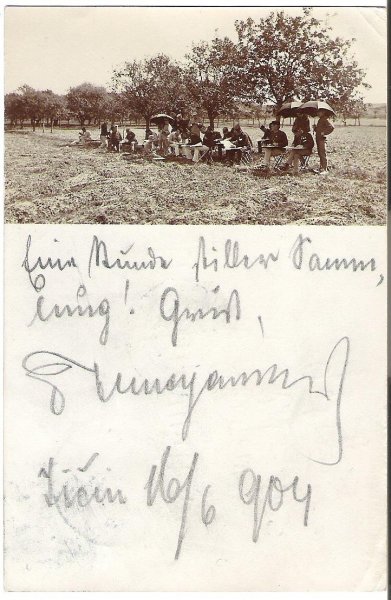 Eine Stunde stiller Samm,
lung! Gruß,
Jičin 16/6 904